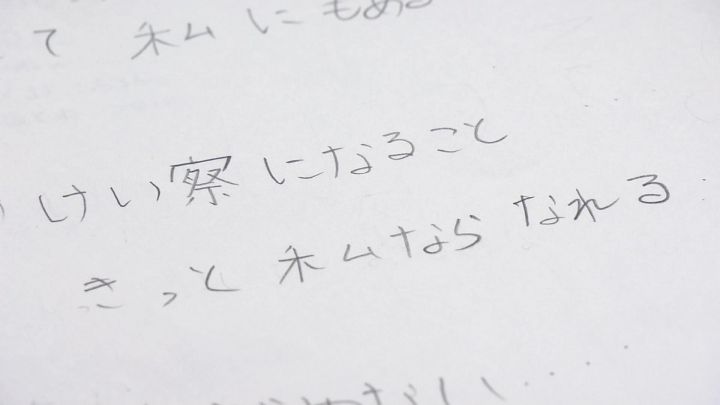 て 私にもある
けい察になること
きっと 私なら なれる
ない・・・・